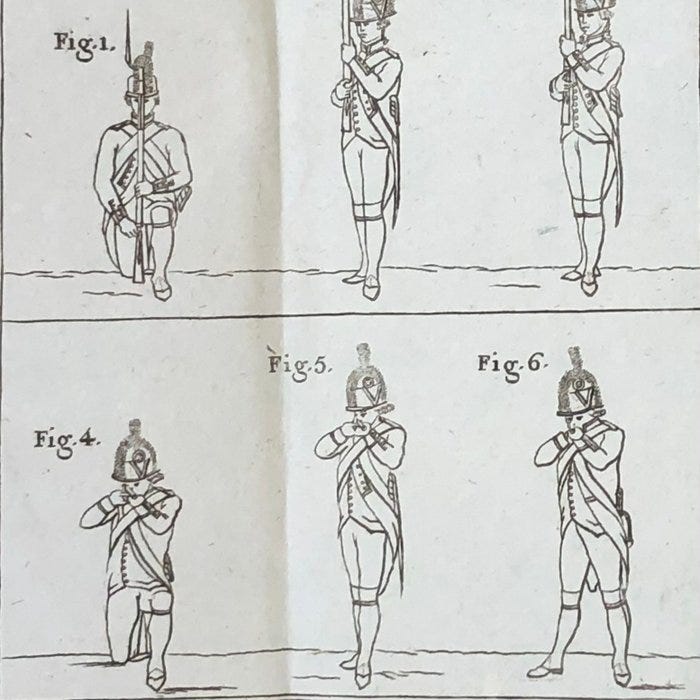 Fig.1.
Fig.5.
Fig.6.
Fig.4.